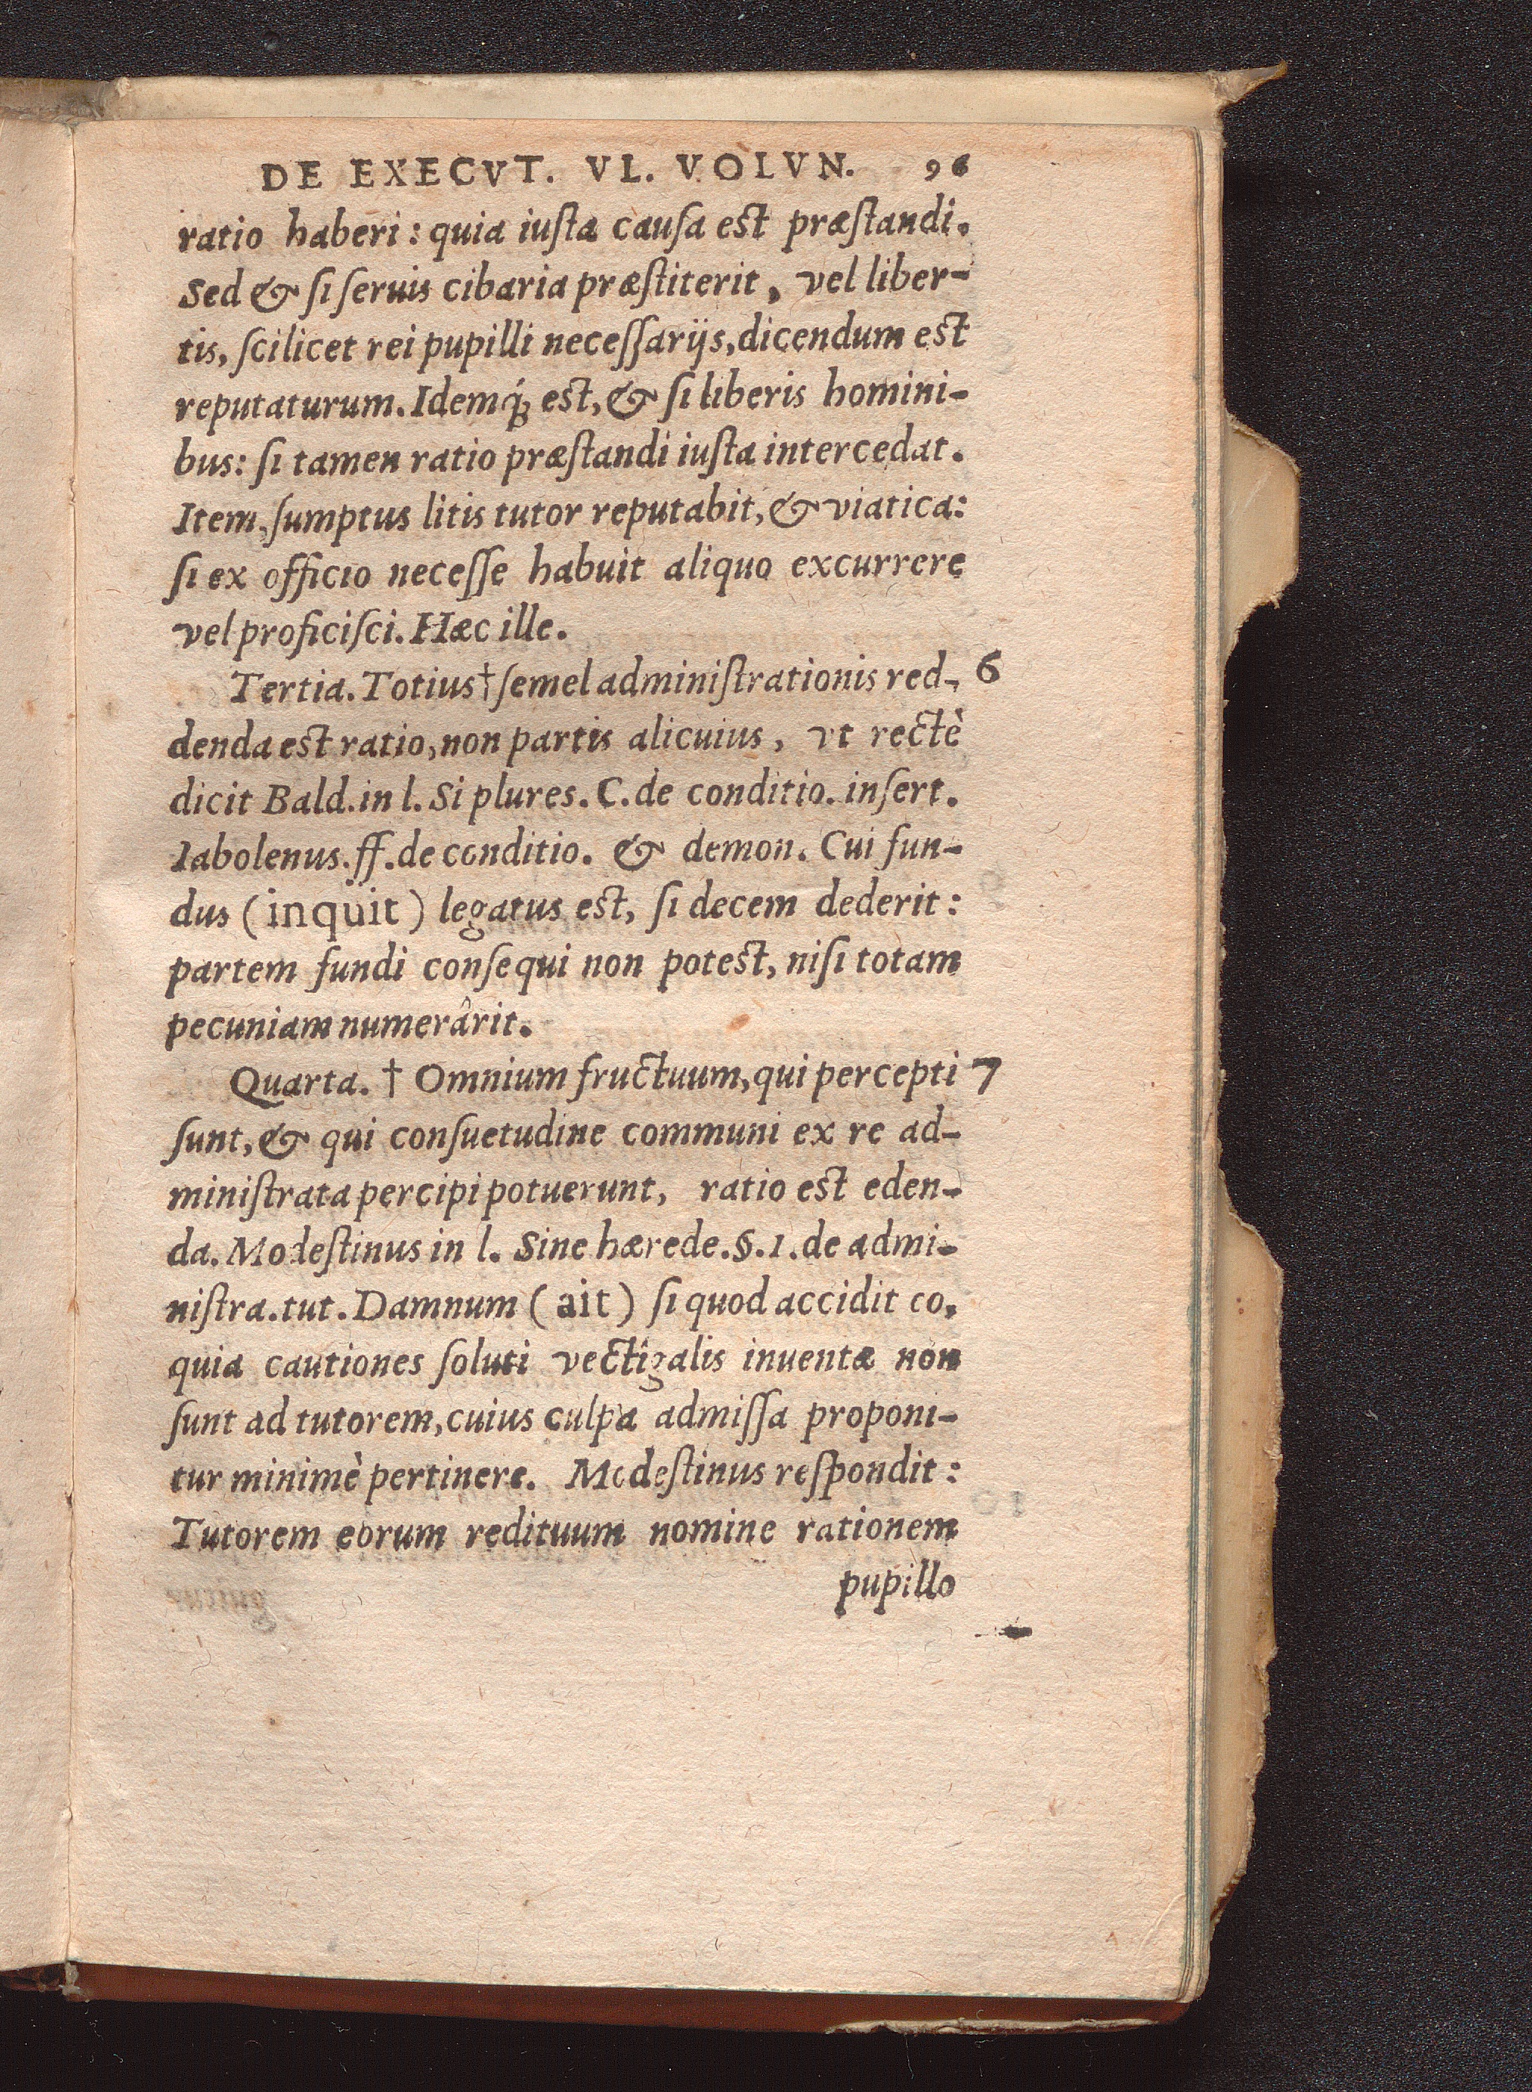 DE EXECVT. VL. VOLVN. 96
ratio haberi: quia iuſta cauſa est præſtandi.
Sed & ſi ſeruis cibaria præſtiterit, vel liber-
tis, ſcilicet rei pupilli neceſſarijs, dicendum est
reputaturum. Idemq́ꝫ est, & ſi liberis homini-
bus: ſi tamen ratio præſtandi iuſta intercedat.
Item, ſumptus litis tutor reputabit, & viatica:
ſi ex officio neceſſe habuit aliquo excurrere
vel proficiſci. Hæc ille.
Tertia. Totius † ſemel adminiſtrationis red- 6
denda est ratio, non partis alicuius, vt rectè
dicit Bald. in l. Si plures. C. de conditio. inſert.
Iabolenus. ff. de conditio. & demon. Cui fun-
dus (inquit) legatus est, ſi decem dederit:
partem fundi conſequi non potest, niſi totam
pecuniam numerârit.
Quarta. † Omnium fructuum, qui percepti 7
ſunt, & qui conſuetudine communi ex re ad-
miniſtrata percipi potuerunt, ratio est eden-
da. Modeſtinus in l. Sine hærede. §. 1. de admi-
niſtra. tut. Damnum (ait) ſi quod accidit eo,
quia cautiones ſoluti vectigalis inuentæ non
ſunt ad tutorem, cuius culpa admiſſa proponi-
tur minimè pertinere. Modeſtinus reſpondit:
Tutorem eorum redituum nomine rationem
pupillo